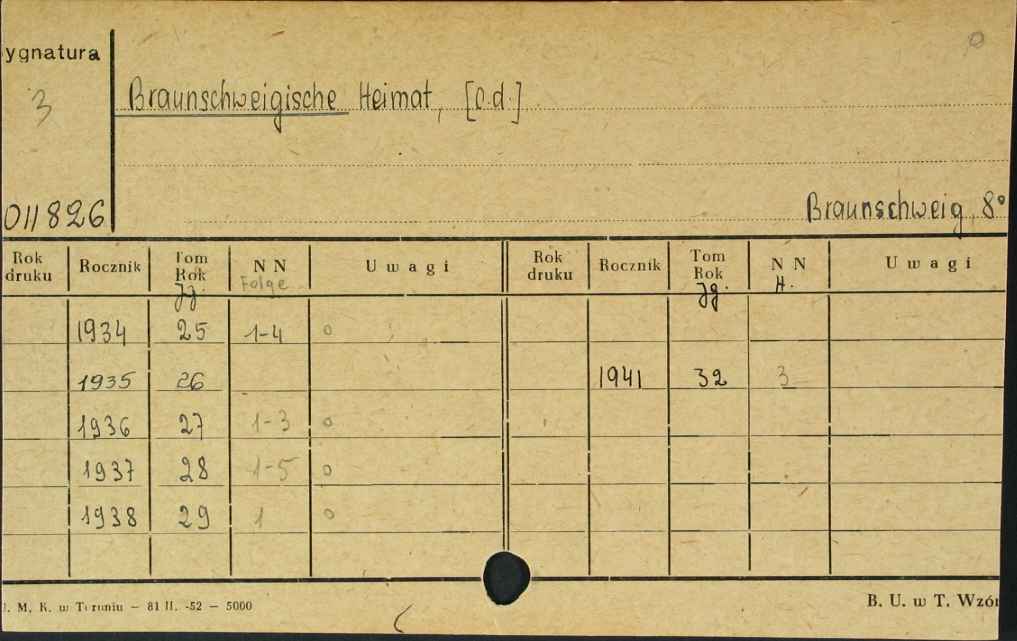 ygnatura
3
Braunschweigische Heimat, [O.d.]
011826
Braunschweig, 8°
Rok druku Rocznik Tom Rok Jg. N N Folge Uwagi Rok druku Rocznik Tom Rok Jg. N N H. Uwagi
1934 25 1-4 o
1935 26 1941 32 3
1936 27 1-3 o
1937 28 1-5 o
1938 29 1 o
U. M. K. w Toruniu — 81 II. -52 — 5000
B. U. w T. Wzór